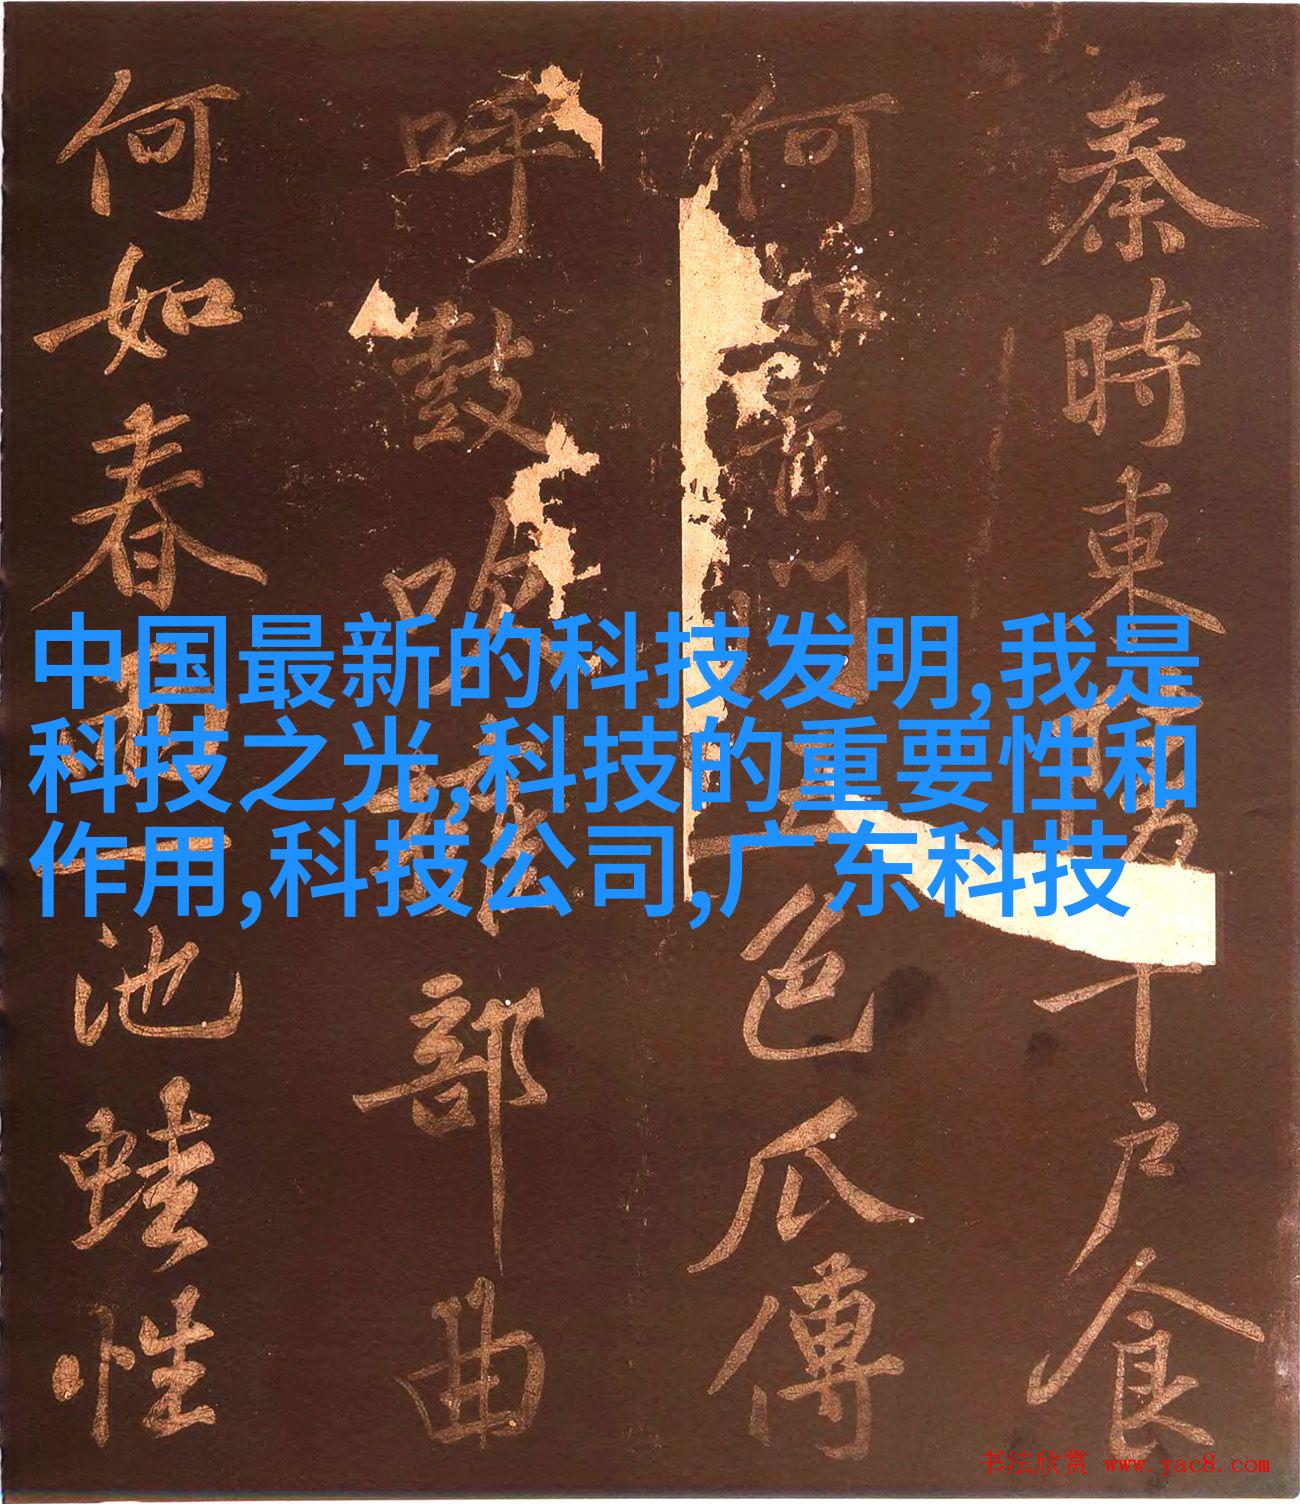 秦時東陵千戶食
何如青門五色瓜傅
呼鼓吹部曲
何如春池蛙性
中国最新的科技发明,我是
科技之光,科技的重要性和
作用,科技公司,广东科技
书法欣赏 www.yac8.com